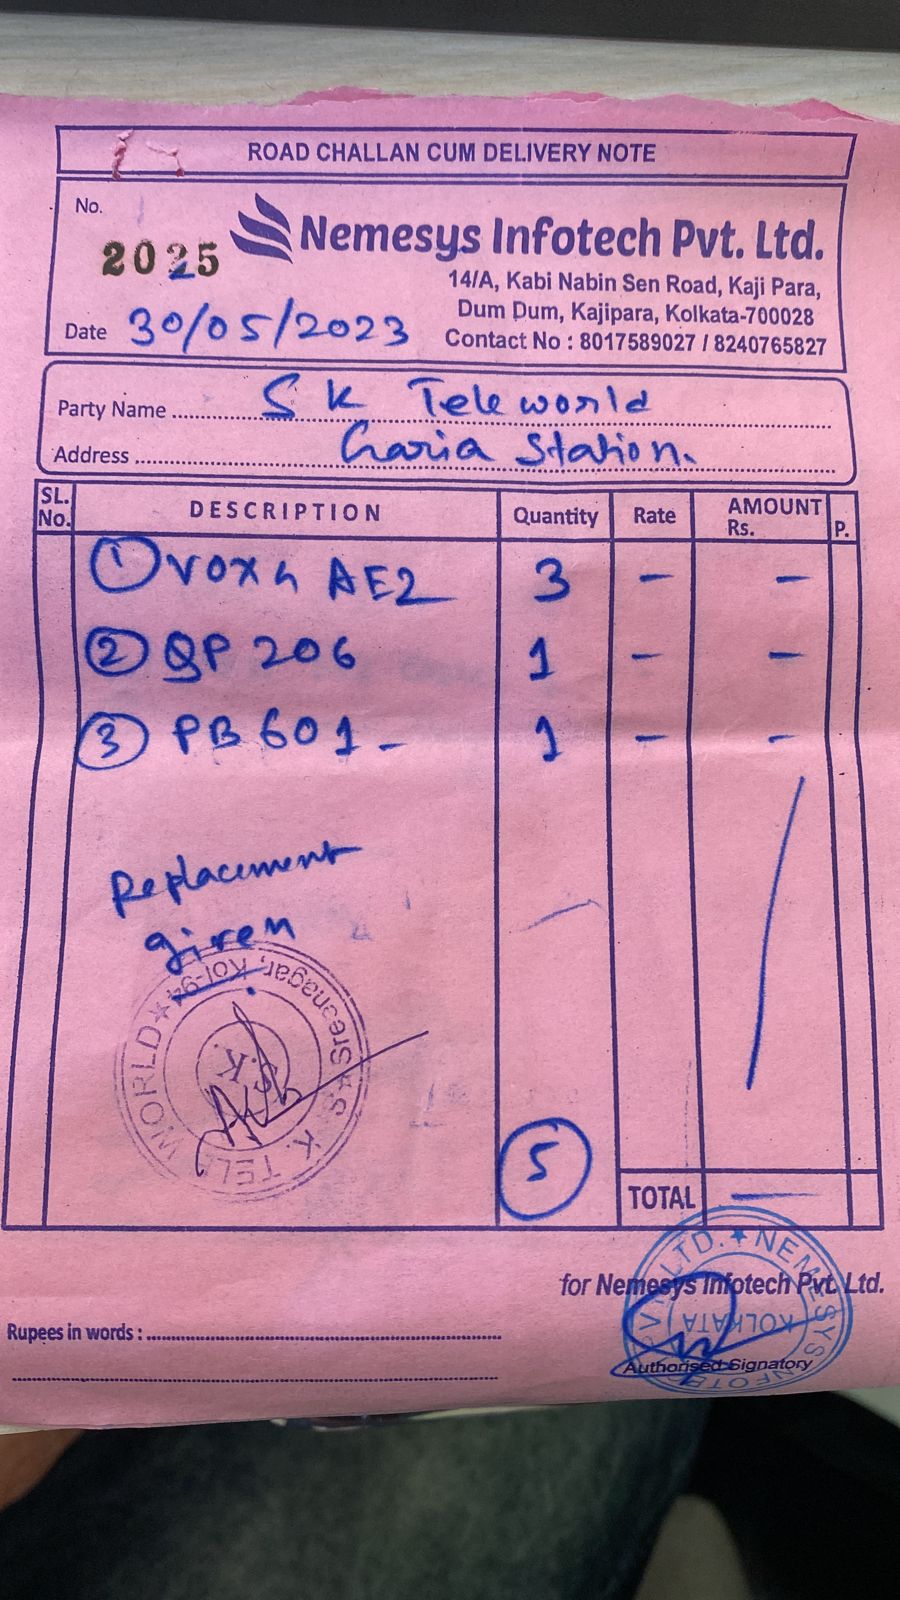 ROAD CHALLAN CUM DELIVERY NOTE
No.
2025
Nemesys Infotech Pvt. Ltd.
14/A, Kabi Nabin Sen Road, Kaji Para,
Dum Dum, Kajipara, Kolkata-700028
Contact No : 8017589027 / 8240765827
Date 30/05/2023
Party Name S K Teleworld
Address Garia Station.
SL. No. DESCRIPTION Quantity Rate AMOUNT Rs. P.
① AE2 3 - -
② 206 1 - -
③ PB 601 - 1 - -
Replacement
given
S. K. TELE WORLD ★ Sreenagar, Kol-94 ★
S. K.
5
TOTAL —
for Nemesys Infotech Pvt. Ltd.
NEMESYS INFOTECH PVT. LTD. ★
KOLKATA
Rupees in words :
Authorised Signatory